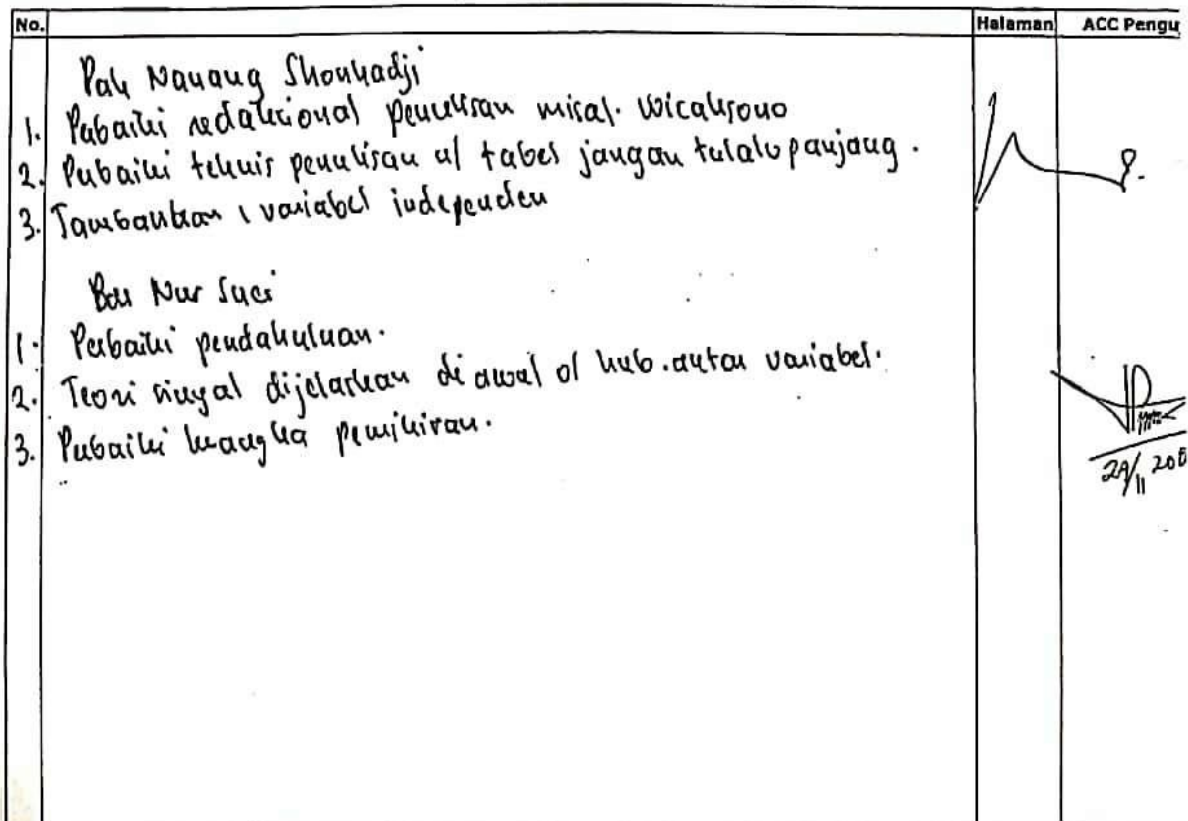 No. Halaman ACC Pengu
Pak Nanang Shonhadji
1. Perbaiki redaksional penulisan misal. Wicaksono
2. Perbaiki teknis penulisan u/ tabel jangan terlalu panjang.
3. Tambahkan 1 variabel independen
Bu Nur Suci
1. Perbaiki pendahuluan.
2. Teori sinyal dijelaskan di awal hub. antar variabel.
3. Perbaiki kerangka pemikiran.